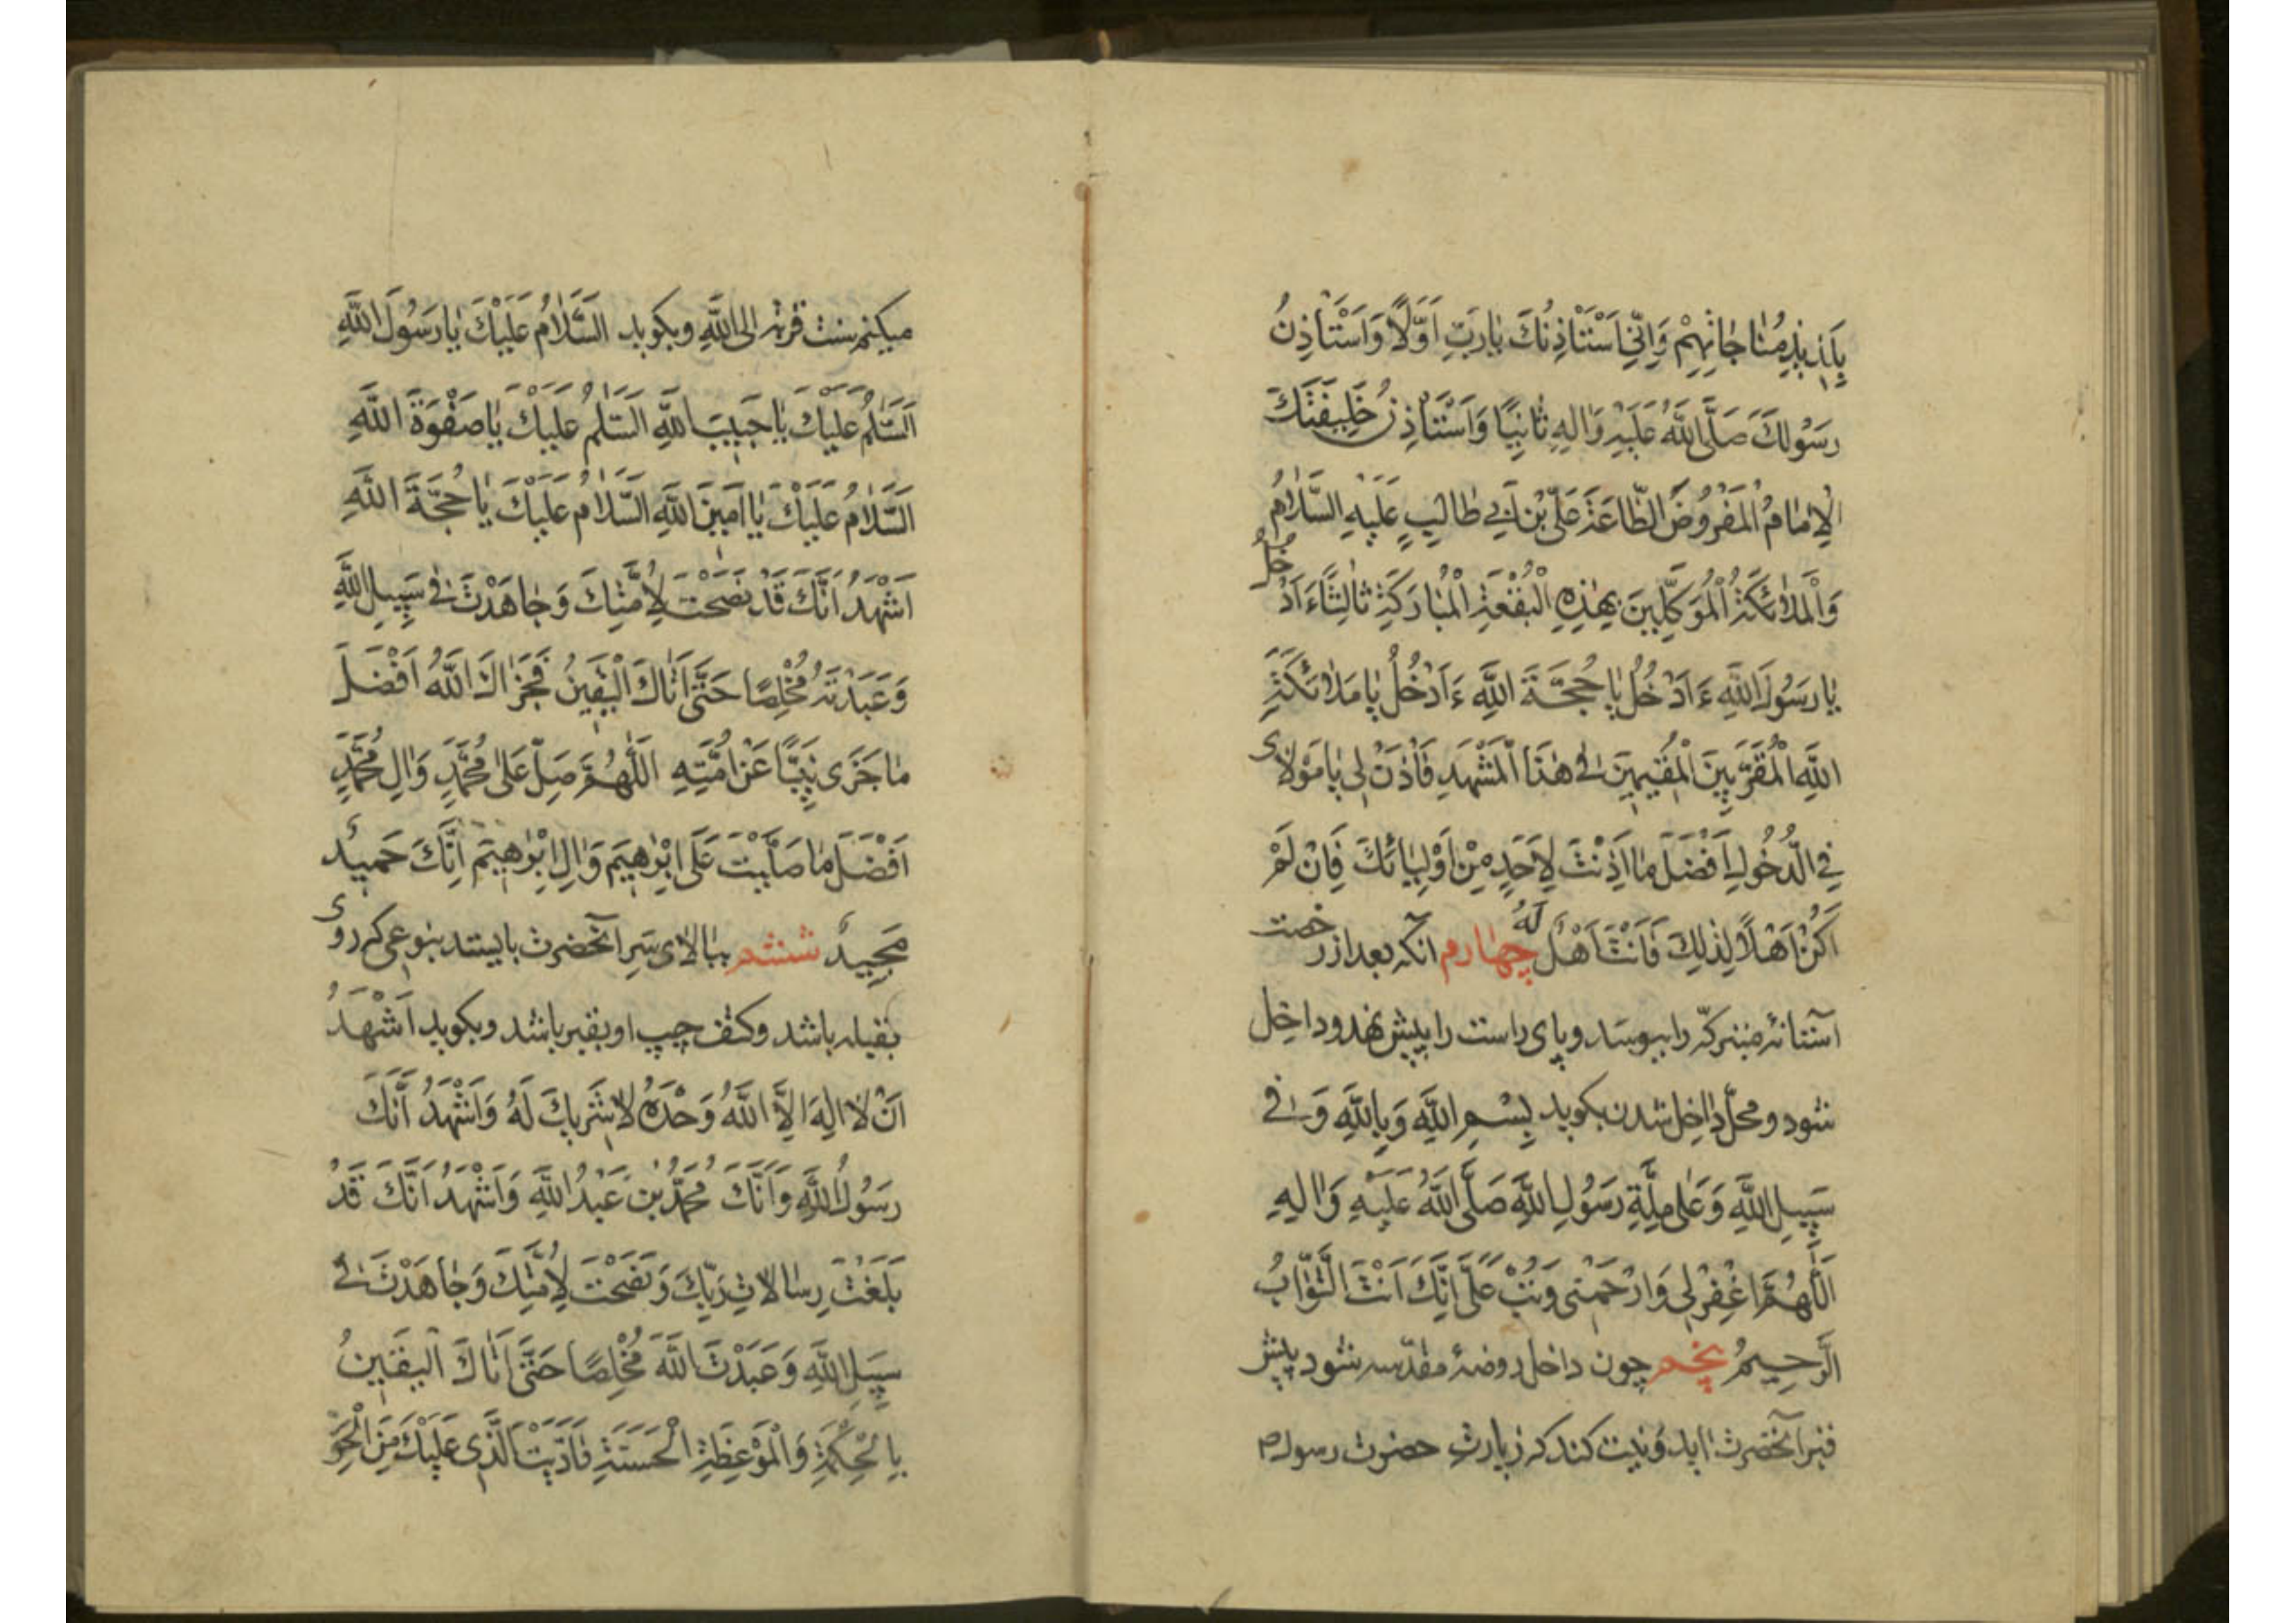 بِلَذیذِ مُنٰاجٰاتِهِمْ وَاِنّی اَسْتَاْذِنُكَ یٰا رَبِّ اَوَّلًا وَاَسْتَاْذِنُ
رَسُولَكَ صَلَّی اللّٰهُ عَلَیْهِ وَاٰلِهِ ثٰانِیًا وَاَسْتَاْذِنُ خَلیفَتَكَ
الْاِمٰامُ الْمَفْرُوضَ الطّٰاعَةَ عَلیَّ بْنَ اَبی طٰالِبٍ عَلَیْهِ السَّلٰامُ
وَالْمَلٰائِكَةُ الْمُوَكَّلینَ بِهٰذِهِ الْبُقْعَةِ الْمُبٰارَكَةِ ثٰالِثًا ءَاَدْخُلُ
یٰا رَسُولَ اللّٰهِ ءَاَدْخُلُ یٰا حُجَّةَ اللّٰهِ ءَاَدْخُلُ یٰا مَلٰائِكَةَ
اللّٰهِ الْمُقَرَّبینَ الْمُقیمینَ فی هٰذَا الْمَشْهَدِ فَاْذَنْ لی یٰا مَوْلٰای
فِی الدُّخُولِ اَفْضَلَ مٰا اَذِنْتَ لِاَحَدٍ مِنْ اَوْلِیٰائِكَ فَاِنْ لَمْ
اَكُنْ اَهْلًا لِذٰلِكَ فَاَنْتَ اَهْلٌ لَهُ چهارم آنكه بعد از رخصت
آستانهٔ متبركه را ببوسد و پای راست را پیش نهد و داخل
شود و محلّ داخل شدن بكوید بِسْمِ اللّٰهِ وَبِاللّٰهِ وَفی
سَبیلِ اللّٰهِ وَعَلیٰ مِلَّةِ رَسُولِ اللّٰهِ صَلَّی اللّٰهُ عَلَیْهِ وَاٰلِهِ
اَللّٰهُمَّ اغْفِرْ لی وَارْحَمْنی وَتُبْ عَلَیَّ اِنَّكَ اَنْتَ التَّوّٰابُ
الرَّحیمُ پنجم چون داخل روضهٔ مقدّسه شود پیش
قبر آنحضرت اید و نیت كند كه زیارت حضرت رسول ص
میكنم سنت قربة الی اللّٰهِ و بكوید اَلسَّلٰامُ عَلَیْكَ یٰا رَسُولَ اللّٰهِ
اَلسَّلٰمُ عَلَیْكَ یٰا حَبیبَ اللّٰهِ اَلسَّلٰمُ عَلَیْكَ یٰا صَفْوَةَ اللّٰهِ
اَلسَّلٰامُ عَلَیْكَ یٰا اَمینَ اللّٰهِ اَلسَّلٰامُ عَلَیْكَ یٰا حُجَّةَ اللّٰهِ
اَشْهَدُ اَنَّكَ قَدْ نَصَحْتَ لِاُمَّتِكَ وَجٰاهَدْتَ فی سَبیلِ اللّٰهِ
وَعَبَدْتَهُ مُخْلِصًا حَتّٰی اَتٰاكَ الْیَقینُ فَجَزٰاكَ اللّٰهُ اَفْضَلَ
مٰا جَزَی نَبِیًّا عَنْ اُمَّتِهِ اَللّٰهُمَّ صَلِّ عَلیٰ مُحَمَّدٍ وَاٰلِ مُحَمَّدٍ
اَفْضَلَ مٰا صَلَّیْتَ عَلَی اِبْرٰهیمَ وَاٰلِ اِبْرٰهیمَ اِنَّكَ حَمیدٌ
مَجیدٌ ششم ببالای سر آنحضرت بایستد بنوعی كه روی
بقبله باشد و كتف چپ او بقبر باشد و بكوید اَشْهَدُ
اَنْ لٰا اِلٰهَ اِلَّا اللّٰهُ وَحْدَهُ لٰا شَریكَ لَهُ وَاَشْهَدُ اَنَّكَ
رَسُولُ اللّٰهِ وَاَنَّكَ مُحَمَّدُ بْنُ عَبْدِ اللّٰهِ وَاَشْهَدُ اَنَّكَ قَدْ
بَلَّغْتَ رِسٰالٰاتِ رَبِّكَ وَنَصَحْتَ لِاُمَّتِكَ وَجٰاهَدْتَ فی
سَبیلِ اللّٰهِ وَعَبَدْتَ اللّٰهَ مُخْلِصًا حَتّٰی اَتٰاكَ الْیَقینُ
بِالْحِكْمَةِ وَالْمَوْعِظَةِ الْحَسَنَةِ وَاَدَّیْتَ الَّذی عَلَیْكَ مِنَ الْحَقِّ